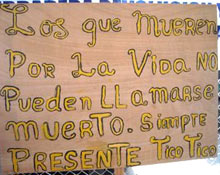 Los que mueren
Por La Vida No
Pueden LLamarse
muerto. Siempre
PRESENTE Tico Tico